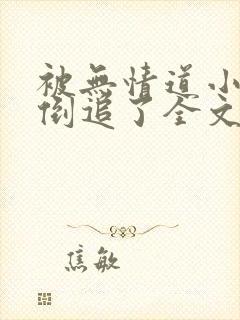 被無情道小
倒追了全文
焦敏